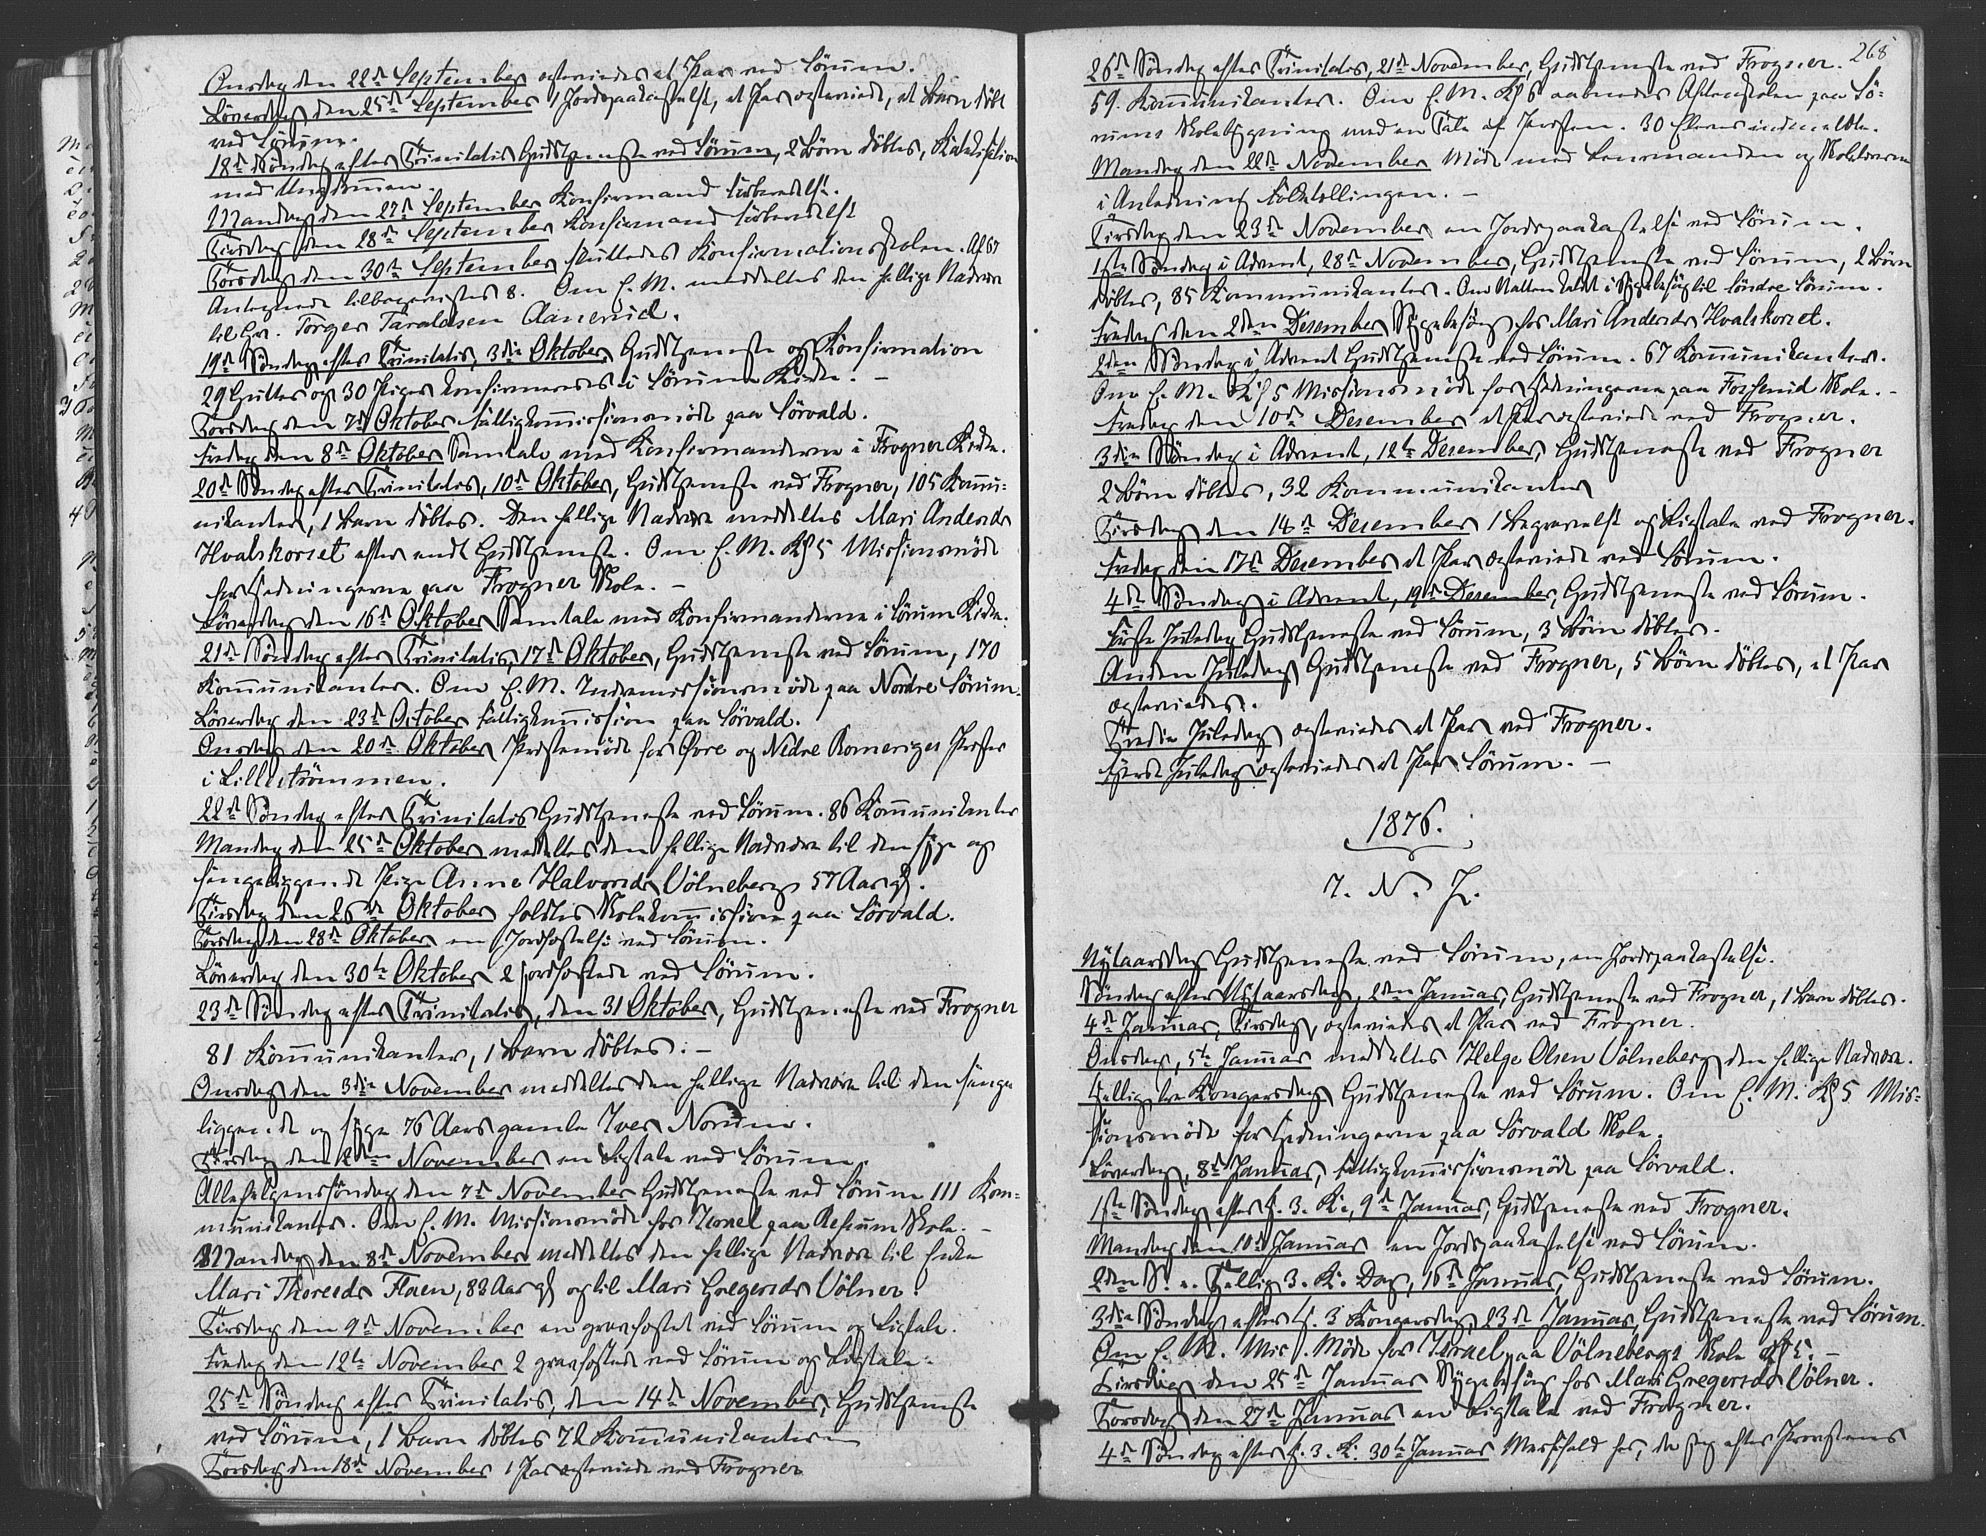 Onsdag den 22de September ægteviedes et Par ved Sørum.
Löverdag den 25de September 1 Jordpaakastelse, et Par ægteviede, et Barn döbt
ved Sørum.
18de Søndag efter Trinitatis Gudstjeneste ved Sørum, 2 Børn döbtes, Katekisation
med Ungdommen.
Mandag den 27de September Konfirmand forberedelse.
Tirsdag den 28de September Konfirmand forberedelse
Torsdag den 30te September sluttedes Konfirmationsskolen. Af 67
Antegnede tilbagevistes 8. Om E. M. meddeltes den hellige Nadvere
til Torger Taraldsen Aanerud.
19de Søndag efter Trinitatis, 3die Oktober Gudstjeneste og Konfirmation
29 Gutter og 30 Piger konfirmeredes i Sørum Kirke. –
Torsdag den 7de Oktober Fattigkommissionsmöde paa Sörvald.
Fredag den 8de Oktober Samtale med Konfirmanderne i Frogner Kirke.
20de Søndag efter Trinitatis, 10de Oktober, Gudstjeneste ved Frogner, 105 Kommu-
nikanter, 1 Barn döbtes. Den hellige Nadvere meddeltes Mari Andersd.
Hvalskorset efter endt Gudstjeneste. Om E. M. Kl 5 Missionsmöde
for Hedningerne paa Frogner Skole. –
Löverdag den 16de Oktober Samtale med Konfirmanderne i Sörum Kirke.
21de Søndag efter Trinitatis, 17de Oktober, Gudstjeneste ved Sørum, 170
Kommunikanter. Om E. M. Indremissionsmöde paa Nordre Sörum.
Löverdag den 23de October Fattigkommission paa Sörvald.
Onsdag den 20de Oktober Prestemöde for Øvre og Nedre Romeriges Prester
i Lilleströmmen.
22de Søndag efter Trinitatis Gudstjeneste ved Sørum. 86 Kommunikanter
Mandag den 25de Oktober meddeltes den hellige Nadvere til den syge og
sengeliggende Pige Anne Halvorsd. Völneberg 57 Aar gl.
Tirsdag den 26de Oktober holdtes Skolekommission paa Sörvald.
Torsdag den 28de Oktober en Jordfæstelse ved Sørum.
Löverdag den 30te Oktober 2 jordfæstede ved Sørum.
23de Søndag efter Trinitatis, den 31 Oktober, Gudstjeneste ved Frogner
81 Kommunikanter, 1 Barn döbtes. –
Onsdag den 3die November meddeltes den hellige Nadvere til den senge
liggende og syge 76 Aars gamle Iver Norum.
Tirsdag den 2den November en Ligtale ved Sørum.
Allehelgenssöndag den 7de November Gudstjeneste ved Sørum 111 Kom-
munikanter. Om E. M. Missionsmöde for Israel paa Refsum Skole. –
Mandag den 8de November meddeltes den hellige Nadvere til Enke
Mari Thoresd. Floen, 83 Aar gl og til Mari Gregersd. Völner.
Tirsdag den 9de November en gravfæstet ved Sørum og Ligtale.
Fredag den 12te November 2 gravfæstede ved Sørum og Ligtale.
25de Søndag efter Trinitatis, den 14de November, Gudstjeneste
ved Sørum, 1 Barn döbtes 72 Kommunikanter
Torsdag den 18de November 1 Par ægteviede ved Frogner
268
26de Søndag efter Trinitatis, 21de November, Gudstjeneste ved Frogner.
59. Kommunikanter. Om E. M. Kl 6 aabnedes Aftenskolen paa Sö-
rums Skolebygning med en Tale af Presten. 30 Elever indmeldte.
Mandag den 22de November Möde med Lensmanden og Skolelærerne
i Anledning Folketellingen. –
Tirsdag den 23de November en Jordpaakastelse ved Sørum.
1ste Søndag i Advent, 28de November, Gudstjeneste ved Sørum, 2 Börn
döbtes, 85 Kommunikanter. Om Natten kaldt i Sygebesög til Söndre Sörum.
Fredag den 2den Desember Sygebesög hos Mari Andersd. Hvalskorset.
2den Søndag i Advent Gudstjeneste ved Sørum. 67 Kommunikanter.
Om E. M. Kl 5 Missionsmöde for Hedningerne paa Skole. –
Fredag den 10de Desember et Par ægteviede ved Frogner.
3die Søndag i Advent, 12te Desember, Gudstjeneste ved Frogner
2 Börn döbtes, 32 Kommunikanter
Tirsdag den 14de Desember 1 Begravelse og Ligtale ved Frogner.
Fredag den 17de Desember et Par ægteviede ved Sørum.
4de Søndag i Advent, 19de Desember, Gudstjeneste ved Sørum.
Første Juledag Gudstjeneste ved Sørum, 3 Börn döbtes.
Anden Juledag Gudstjeneste ved Frogner, 5 Börn döbtes, et Par
ægteviedes.
Tredie Juledag ægteviedes et Par ved Frogner.
Fjerde Juledag ægteviedes et Par Sørum. –
1876.
I. N. J.
Nytaarsdag Gudstjeneste ved Sørum, en Jordpaakastelse.
Søndag efter Nytaarsdag, 2den Januar, Gudstjeneste ved Frogner, 1 Barn döbtes.
4de Januar, Tirsdag, ægteviedes et Par ved Frogner.
Onsdag, 5te Januar meddeltes Helge Olsen Völneberg den hellige Nadvere.
Hellig tre Kongersdag Gudstjeneste ved Sørum. Om E. M. Kl 5 Mis-
sionsmöde for Hedningerne paa Sörvald Skole.
Löverdag, 8de Januar, Fattigkommissionsmöde paa Sörvald.
1ste Søndag efter h. 3. K., 9de Januar, Gudstjeneste ved Frogner.
Mandag den 10de Januar en Jordpaakastelse ved Sørum.
2den S. e. Hellig 3. K. Dag, 16de Januar, Gudstjeneste ved Sørum.
3die Søndag efter h. 3 Kongersdag, 23de Januar Gudstjeneste ved Sörum.
Om E. M. Mis. Möde for Israel paa Völnebergs Skole Kl 5. –
Tirsdag den 25de Januar Sygebesög hos Mari Gregersd. Völner.
Torsdag den 27de Januar en Ligtale ved Frogner.
4de Søndag efter h. 3. K. 30te Januar Messefald her, da jeg efter Provstens